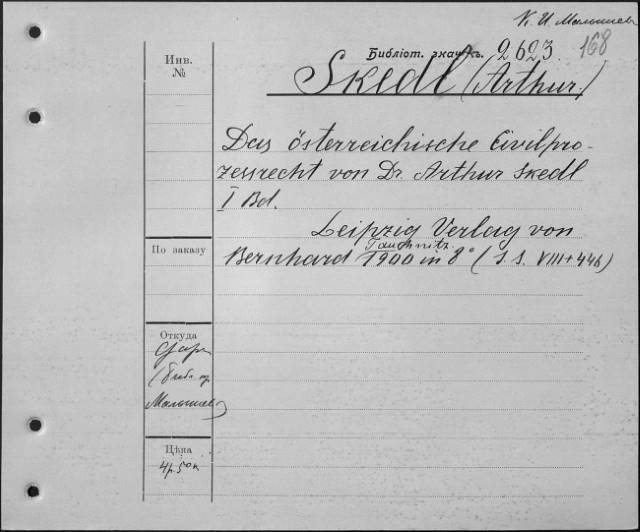 К. И. Малышев
168
Библіот. значкъ. 2623
Skedl (Arthur.)
Инв.
№
Das österreichische Civilpro-
zessrecht von Dr. Arthur Skedl
I Bd.
Leipzig Verlag von
Tauchnitz.
Bernhard 1900 in 8° (S. S. VIII + 446)
По заказу
Откуда
Даръ
(библ.
Малышева)
Цѣна
4р. 50к